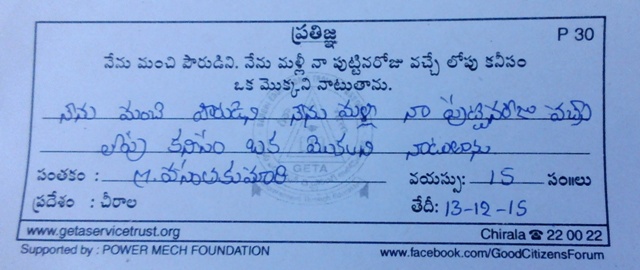 ప్రతిజ్ఞ P 30
నేను మంచి పౌరుడిని. నేను మళ్లీ నా పుట్టినరోజు వచ్చే లోపు కనీసం
ఒక మొక్కని నాటుతాను.
నాను మంచి పౌరుడిని నాను మళ్లి నా పుట్టినరోజు వచ్చే
లోపు కనిసం ఒక మొకని నాటుతాను
సంతకం : M. వసంతకుమారి వయస్సు: 15 సం॥లు
ప్రదేశం : చీరాల తేదీ: 13-12-15
GETA
www.getaservicetrust.org Chirala ☎ 22 00 22
Supported by : POWER MECH FOUNDATION www.facebook.com/GoodCitizensForum